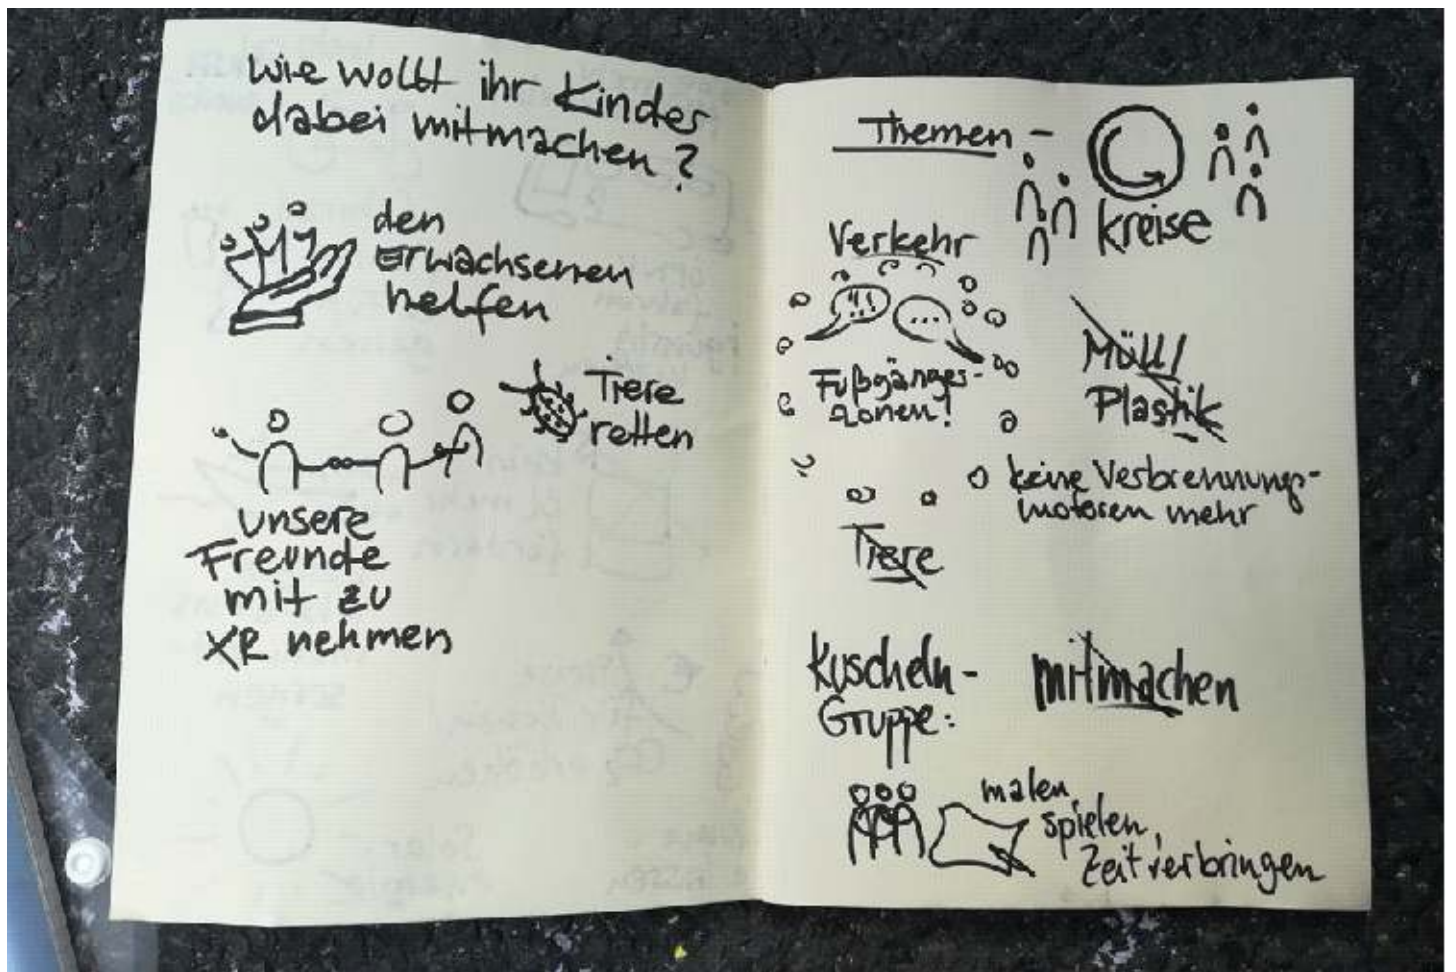 Wie wollt ihr Kinder
dabei mitmachen?
den
Erwachsenen
helfen
Tiere
retten
unsere
Freunde
mit zu
XR nehmen
Themen -
kreise
Verkehr
Fußgänger-
zonen!
Müll/
Plastik
keine Verbrennungs-
motoren mehr
Tiere
Kuscheln-
Gruppe:
mitmachen
malen,
spielen,
Zeit verbringen